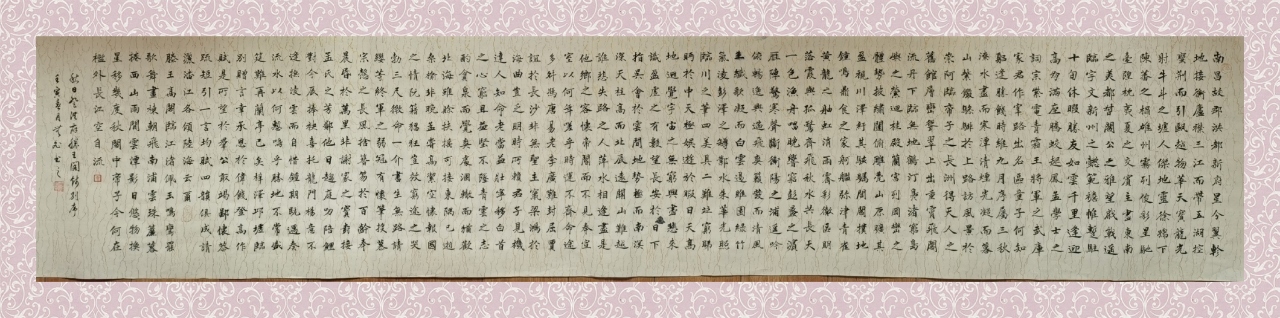 南昌故郡洪都新府星分翼軫
地接衡廬襟三江而帶五湖控
蠻荊而引甌越物華天寶龍光
射牛斗之墟人傑地靈徐孺下
陳蕃之榻雄州霧列俊彩星馳
臺隍枕夷夏之交賓主盡東南
之美都督閻公之雅望棨戟遙
臨宇文新州之懿範襜帷暫駐
十旬休暇勝友如雲千里逢迎
高朋滿座騰蛟起鳳孟學士之
詞宗紫電青霜王將軍之武庫
家君作宰路出名區童子何知
躬逢勝餞時維九月序屬三秋
潦水盡而寒潭清煙光凝而暮
山紫儼驂騑於上路訪風景於
崇阿臨帝子之長洲得天人之
舊館層巒聳翠上出重霄飛閣
流丹下臨無地鶴汀鳧渚窮島
嶼之縈迴桂殿蘭宮列岡巒之
體勢披繡闥俯雕甍山原曠其
盈視川澤紆其駭矚閭閻撲地
鐘鳴鼎食之家舸艦彌津青雀
黃龍之舳虹銷雨霽彩徹區明
落霞與孤鶩齊飛秋水共長天
一色漁舟唱晚響窮彭蠡之濱
雁陣驚寒聲斷衡陽之浦遙吟
俯暢逸興遄飛爽籟發而清風
生纖歌凝而白雲遏睢園綠竹
氣凌彭澤之樽鄴水朱華光照
臨川之筆四美具二難並窮睇
眄於中天極娛遊於暇日天高
地迥覺宇宙之無窮興盡悲來
識盈虛之有數望長安於日下
指吳會於雲間地勢極而南溟
深天柱高而北辰遠關山難越
誰悲失路之人萍水相逢盡是
他鄉之客懷帝閽而不見奉宣
室以何年嗟乎時運不齊命途
多舛馮唐易老李廣難封屈賈
誼於長沙非無聖主竄梁鴻於
海曲豈乏明時所賴君子見機
達人知命老當益壯寧移白首
之心窮且益堅不墜青雲之志
酌貪泉而覺爽處涸轍而猶歡
北海雖賒扶搖可接東隅已逝
桑榆非晚孟嘗高潔空懷報國
之情阮籍猖狂豈效窮途之哭
勃三尺微命一介書生無路請
纓等終軍之弱冠有懷筆投慕
宗愨之長風舍簪笏於百齡奉
晨昏於萬里非謝家之寶樹接
孟氏之芳鄰他日趨庭叨陪鯉
對今茲捧袂喜托龍門楊意不
逢撫凌雲而自惜鍾期既遇奏
流水以何慚嗚乎勝地不常盛
筵難再蘭亭已矣梓澤邱墟臨
別贈言幸承恩於偉餞登高作
賦是所望於群公敢竭鄙懷恭
疏短引一言均賦四韻俱成請
灑潘江各傾陸海云爾
滕王高閣臨江渚佩玉鳴鸞罷
歌舞畫棟朝飛南浦雲珠簾暮
捲西山雨閒雲潭影日悠悠物換
星移幾度秋閣中帝子今何在
檻外長江空自流
秋日登洪府滕王閣餞別序
壬寅年